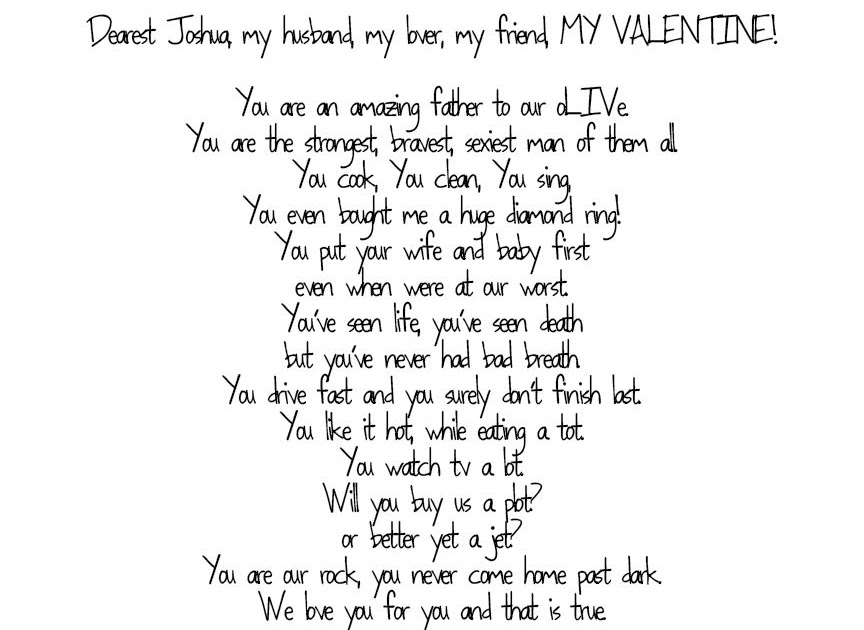 Dearest Joshua, my husband, my lover, my friend, MY VALENTINE!
You are an amazing father to our oLIVe.
You are the strongest, bravest, sexiest man of them all.
You cook, You clean, You sing,
You even bought me a huge diamond ring!
You put your wife and baby first
even when were at our worst.
You've seen life, you've seen death
but you've never had bad breath.
You drive fast and you surely don't finish last.
You like it hot, while eating a tot.
You watch tv a lot.
Will you buy us a plot?
or better yet a jet?
You are our rock, you never come home past dark.
We love you for you and that is true.